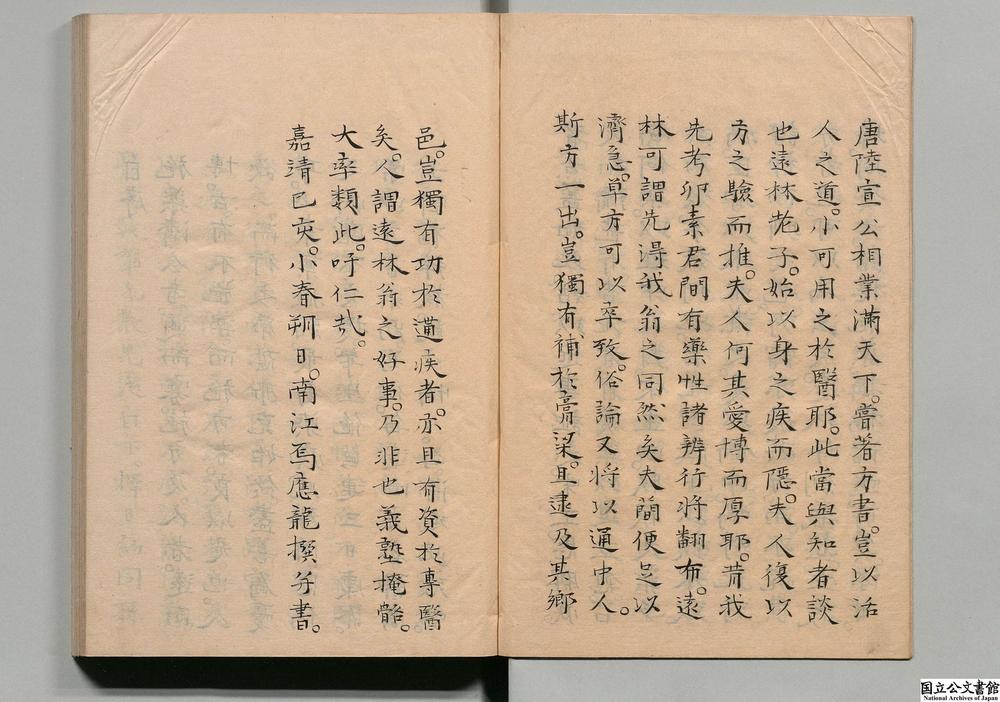 唐陸宣公相業滿天下。嘗著方書。豈以活
人之道。小可用之於醫耶。此當與知者談
也遠林老子。始以身之疾而隱。夫人復以
方之驗而推。夫人何其愛博而厚耶。昔我
先考卯素君間有藥性諸辨行將翻布。遠
林可謂先得我翁之同然矣夫簡便足以
濟急。草方可以卒致。俗論又將以通中人。
斯方一出。豈獨有補於膏梁。且逮及其鄉
邑。豈獨有功於遘疾者。亦且有資於專醫
矣。人謂遠林翁之好事。乃非也義塾掩骼。
大率類此。吁仁哉。
嘉清。已亥。小春朔日。南江馬應龍撰并書。
国立公文書館
National Archives of Japan